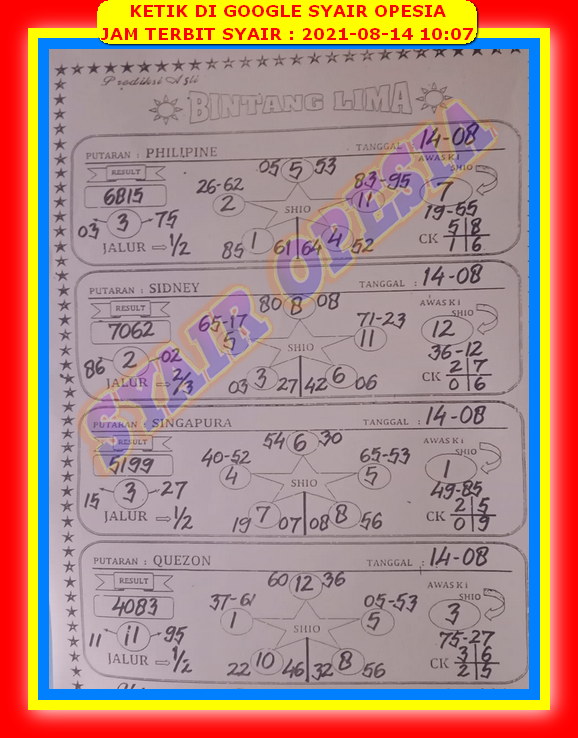 KETIK DI GOOGLE SYAIR OPESIA
JAM TERBIT SYAIR : 2021-08-14 10:07
Prediksi Asli
BINTANG LIMA
SYAIR OPESIA
PUTARAN : PHILIPINE TANGGAL : 14-08
RESULT 05 5 53 AWAS KI SHIO
6815 26-62 2 83-95 11 7
03 3 75 SHIO 19-55
JALUR ⇨ 1/2 85 1 61 64 4 52 CK 5 8
1 6
PUTARAN : SIDNEY TANGGAL : 14-08
RESULT 80 8 08 AWAS KI SHIO
7062 65-17 5 71-23 11 12
86 2 02 SHIO 36-12
JALUR ⇨ 2/3 03 3 27 42 6 06 CK 2 7
0 6
PUTARAN : SINGAPURA TANGGAL : 14-08
RESULT 54 6 30 AWAS KI SHIO
5199 40-52 4 65-53 5 1
15 3 27 SHIO 49-85
JALUR ⇨ 1/2 19 7 07 08 8 56 CK 2 5
0 9
PUTARAN : QUEZON TANGGAL : 14-08
RESULT 60 12 36 AWAS KI SHIO
4083 37-61 1 05-53 5 3
11 11 95 SHIO 75-27
JALUR ⇨ 1/2 22 10 46 32 8 56 CK 3 6
2 5